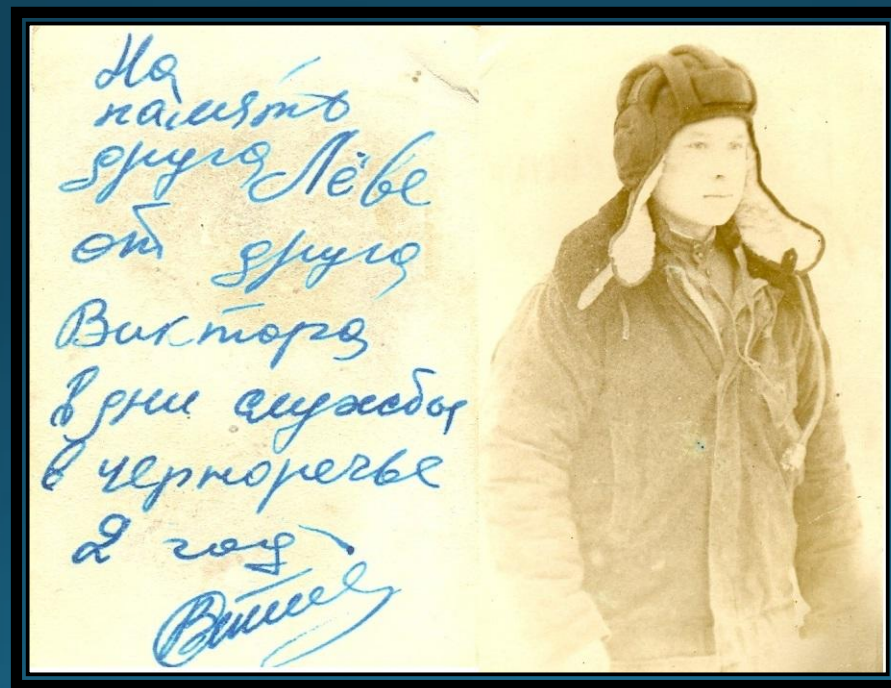 На
память
друга Лёве
от друга
Виктора
в дни службы
в черноречье
2 год